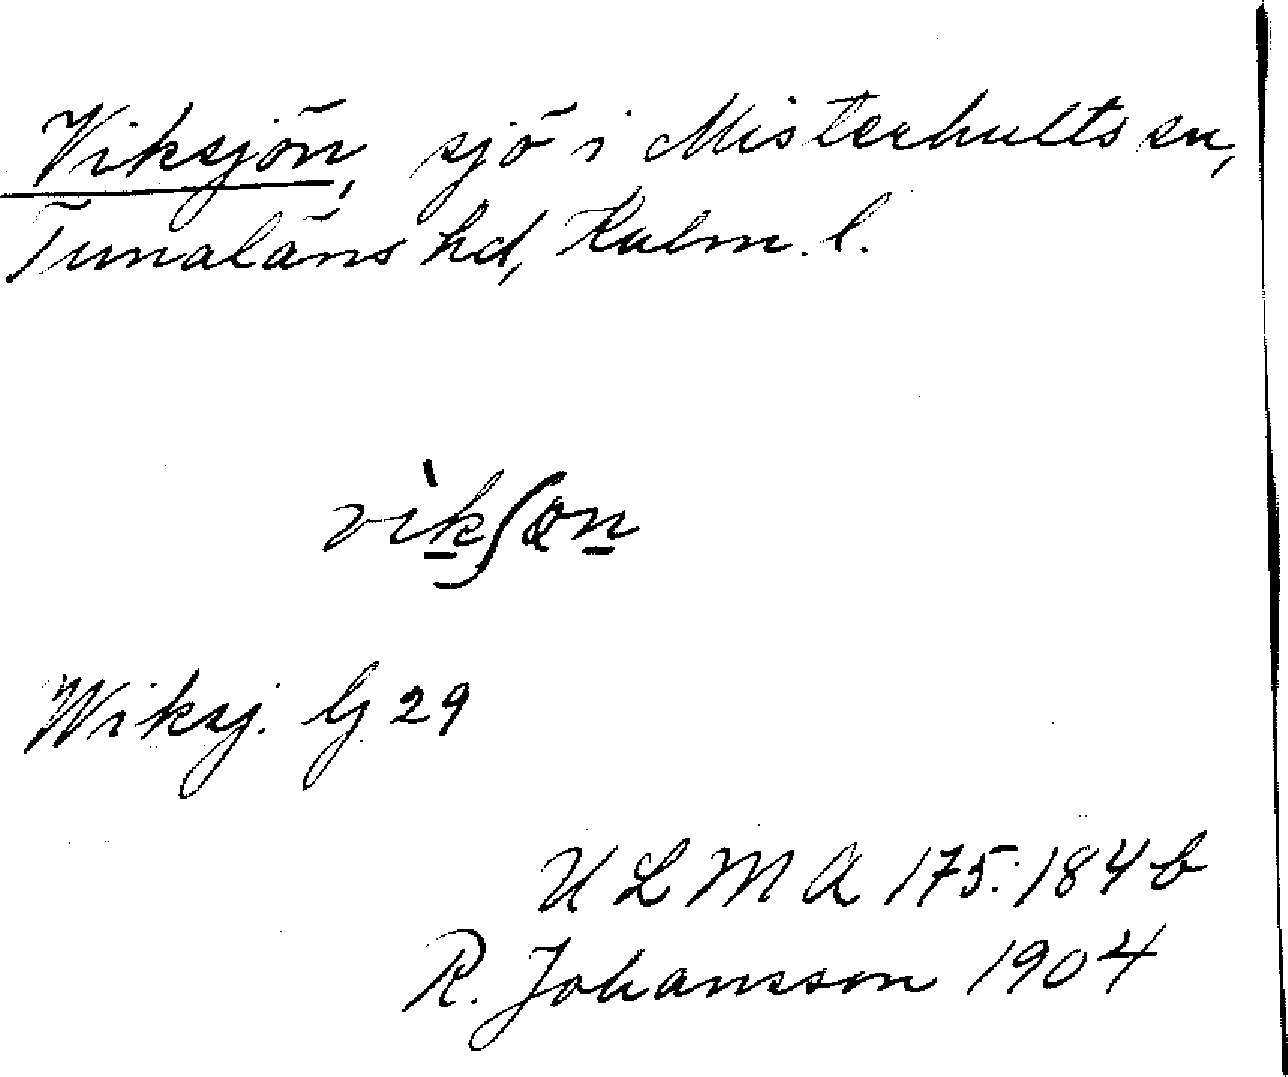 Viksjön, sjö i Misterhults sn,
Tunaläns hd, Kalm. l.
Wiksj. G 29
ULMA 175:184 b
R. Johansson 1904